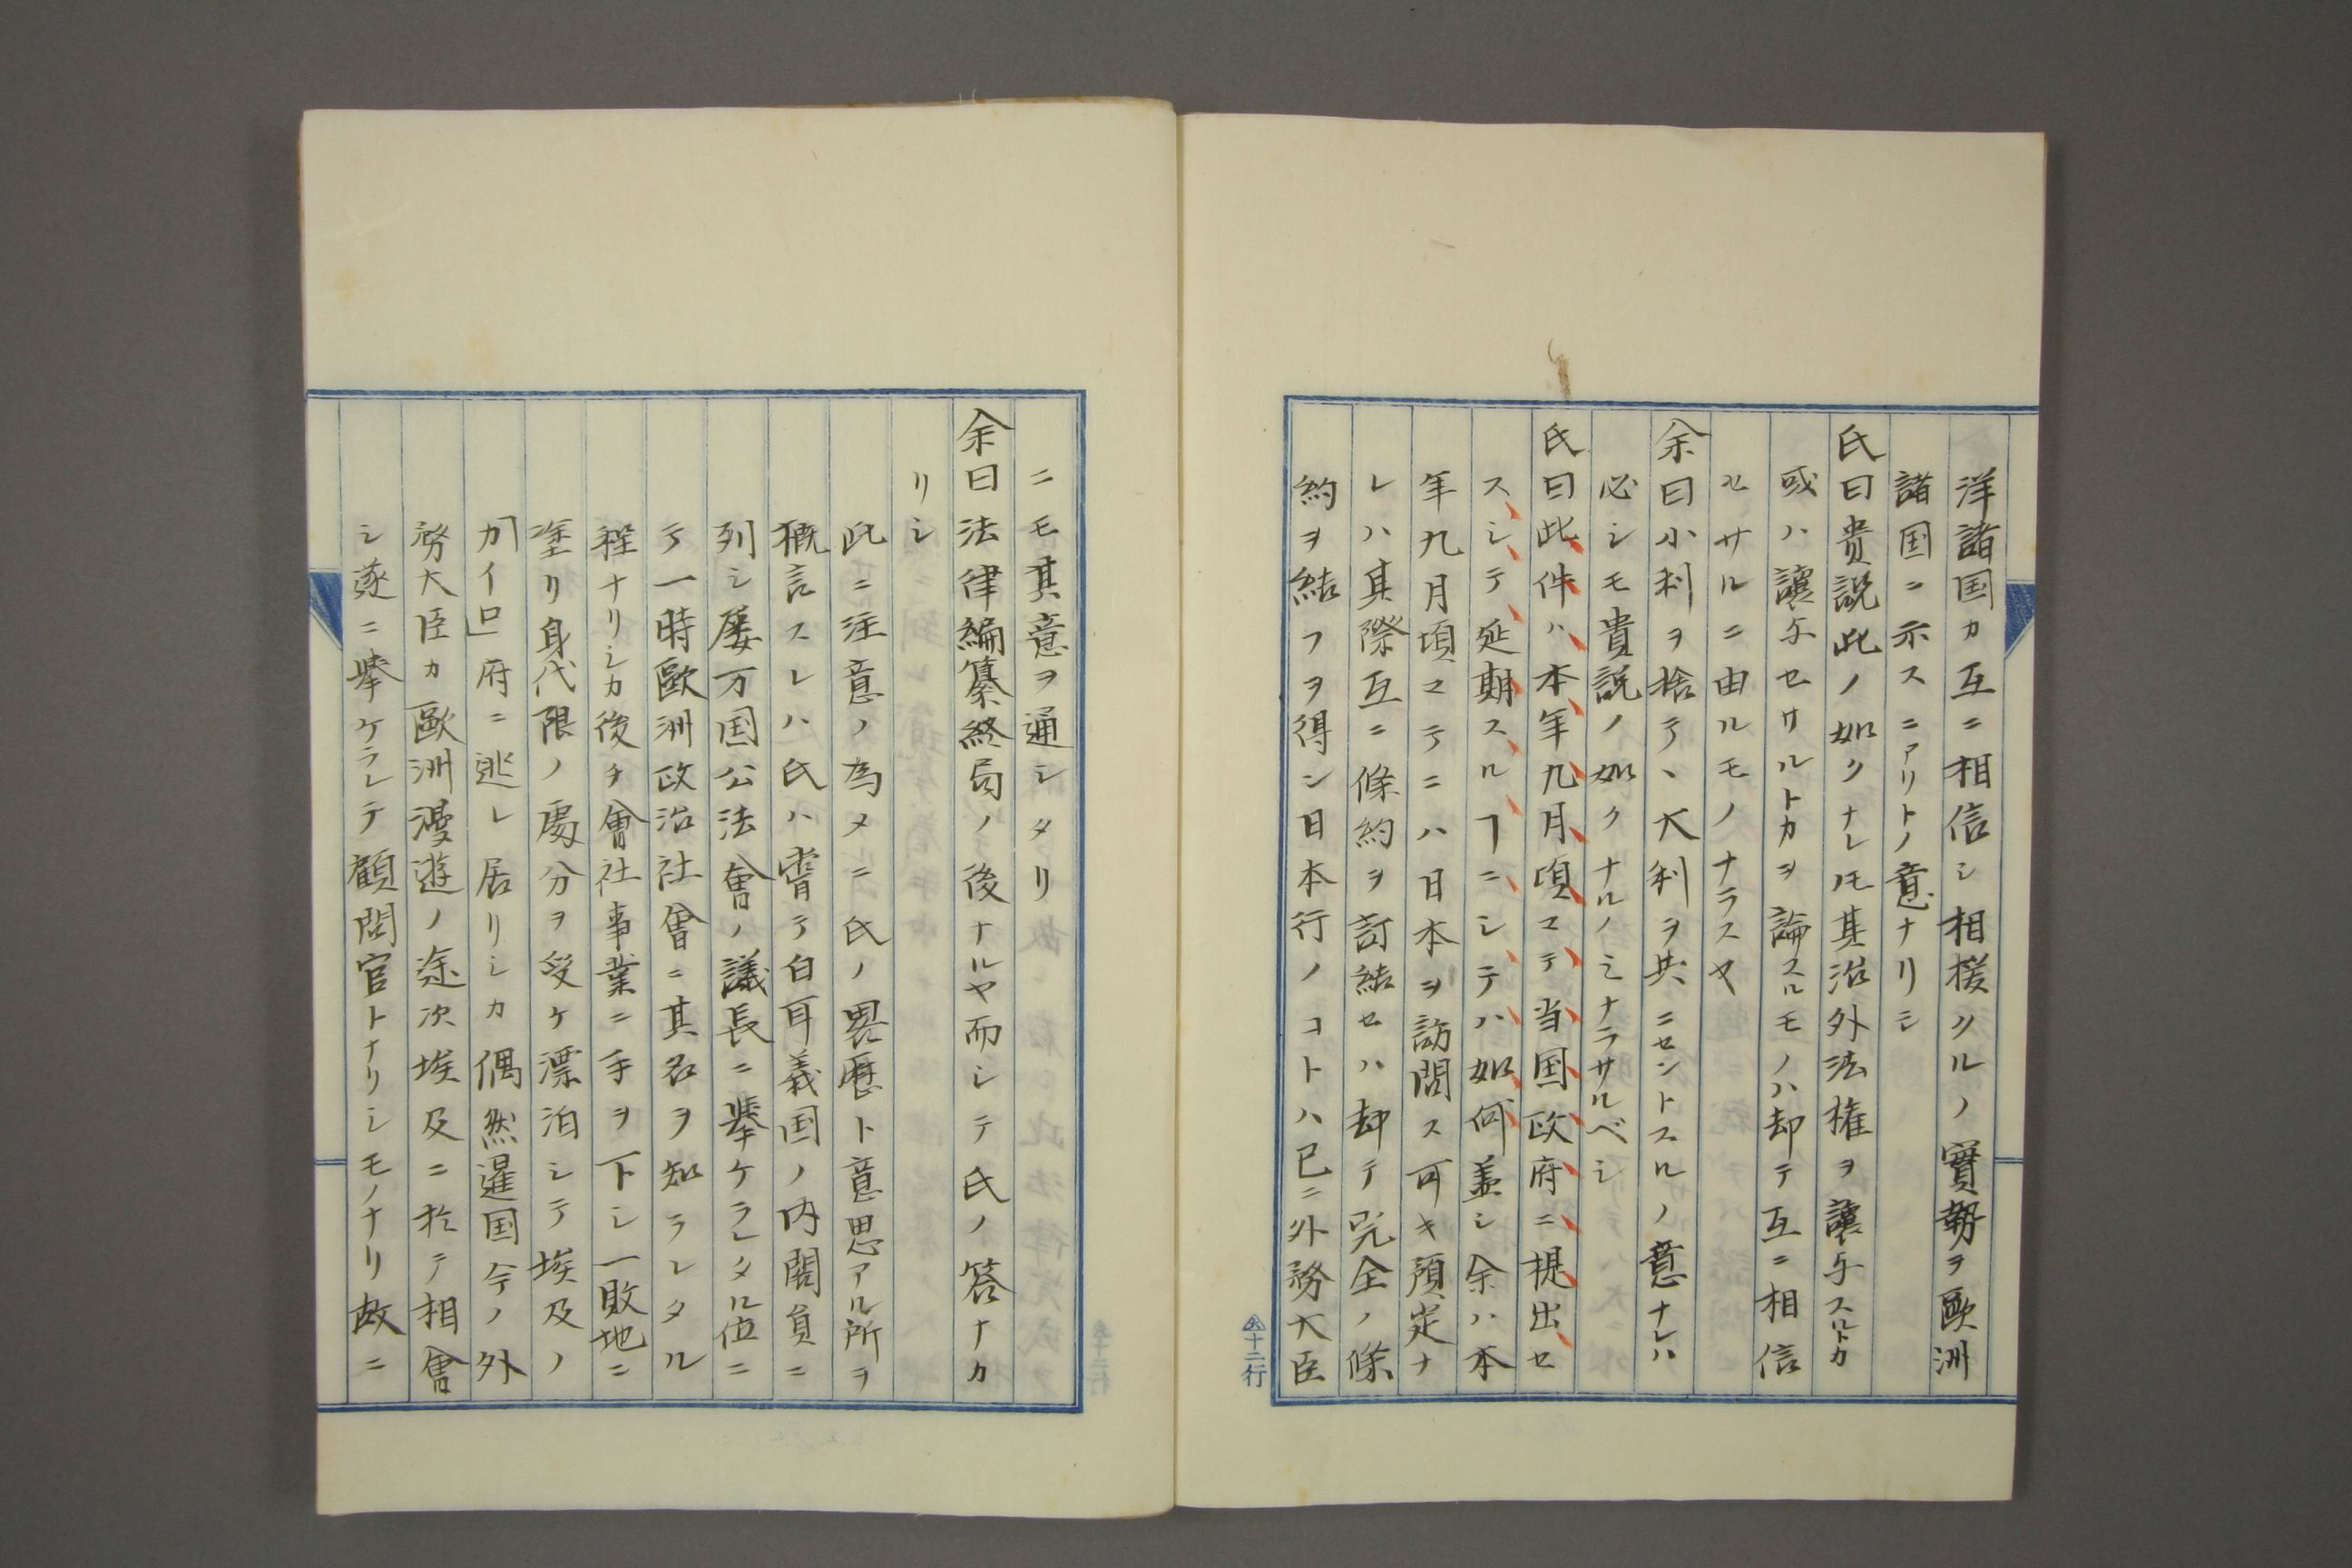 洋諸国カ互ニ相信シ相援クルノ實勢ヲ歐洲
諸国ニ示スニアリトノ意ナリシ
氏曰貴説此ノ如クナレ𪜈其治外法権ヲ譲与スルトカ
或ハ譲与セサルトカヲ論スルモノハ却テ互ニ相信
セサルニ由ルモノナラスヤ
余曰小利ヲ捨テ、大利ヲ共ニセントスルノ意ナレハ
必シモ貴説ノ如クナルノミナラサルベシ
氏曰此件ハ本年九月頃マテ当国政府ニ提出セ
スシテ延期スルヿニシテハ如何盖シ余ハ本
年九月頃マテニハ日本ヲ訪問ス可キ預定ナ
レハ其際互ニ條約ヲ訂結セハ却テ完全ノ條
約ヲ結フヲ得ン日本行ノコトハ已ニ外務大臣
ニモ其意ヲ通シタリ
余曰法律編纂終局ノ後ナルヤ而シテ氏ノ答ナカ
リシ
此ニ注意ノ為メニ氏ノ畧歴ト意思アル所ヲ
概言スレハ氏ハ嘗テ白耳義国ノ内閣員ニ
列シ屡万国公法會ノ議長ニ挙ケラレタル位ニ
テ一時歐洲政治社會ニ其名ヲ知ラレタル
程ナリシカ後チ會社事業ニ手ヲ下シ一敗地ニ
塗リ身代限ノ處分ヲ受ケ漂泊シテ埃及ノ
「カイロ」府ニ逃レ居リシカ偶然暹国今ノ外
務大臣カ歐洲漫遊ノ途次埃及ニ於テ相會
シ遂ニ挙ケラレテ顧問官トナリシモノナリ故ニ
十二行